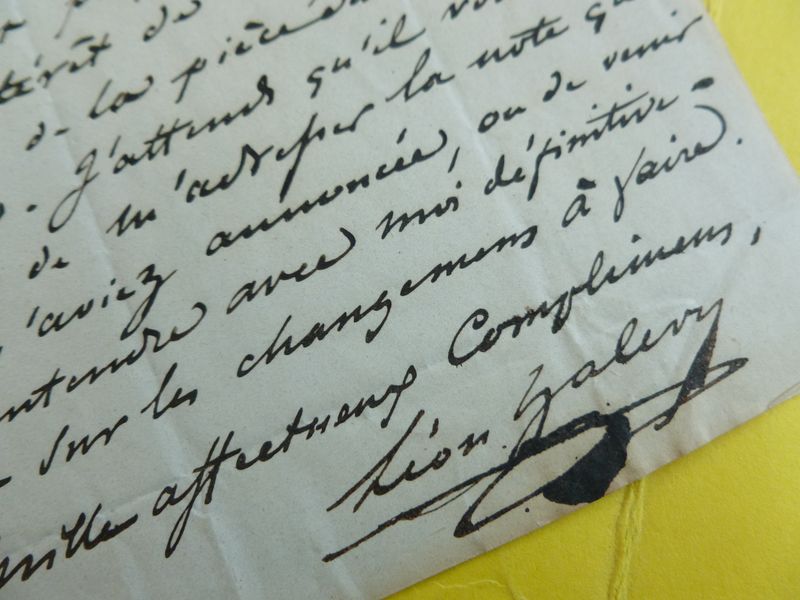 térêt de
de la pièce
J'attends qu'il vou
de m'adresser la note qu
l'aviez annoncée, ou de venir
entendre avec moi définitive-
sur les changemens à faire.
mille affectueux Complimens,
Léon Halevy